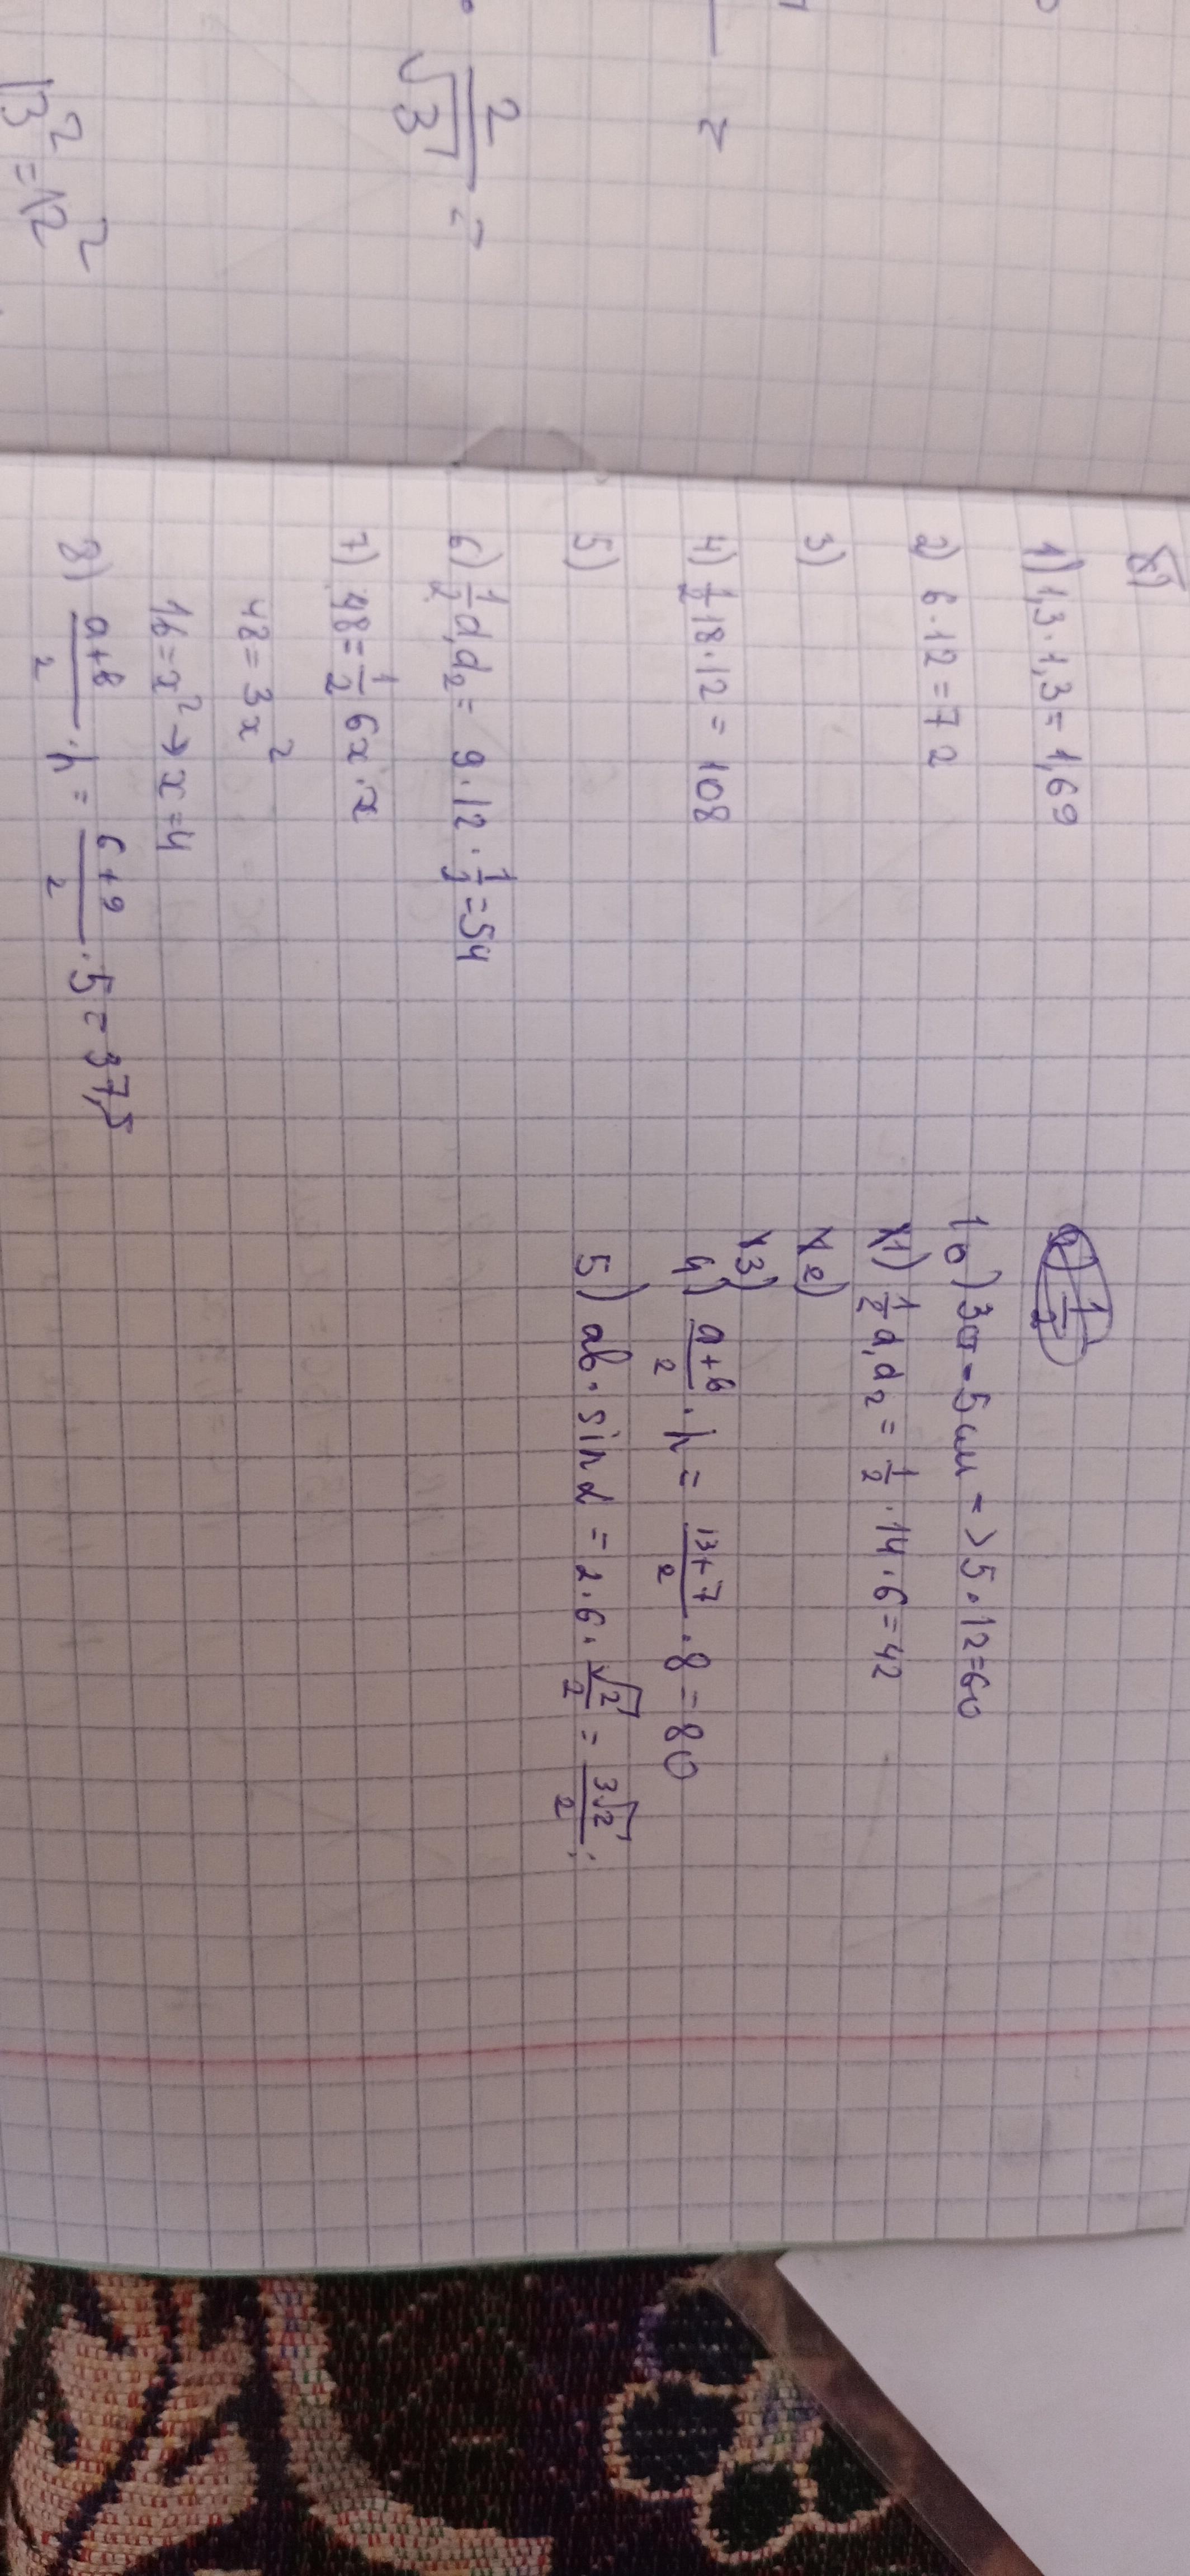 2
√3 =
=
13² = 12²
1) 1,3 · 1,3 = 1,69
2) 6 · 12 = 72
3)
4) 1/2 18 · 12 = 108
5)
6) 1/2 d₁d₂ = 9 · 12 · 1/2 = 54
7) 48 = 1/2 6x · x
48 = 3x²
16 = x² → x = 4
8) a+в/2 · h = 6+9/2 · 5 = 37,5
10) => 5 · 12 = 60
11) 1/2 d₁d₂ = 1/2 · 14 · 6 = 42
2)
3)
4) a+в/2 · h = 13+7/2 · 8 = 80
5) ab · sin α = 2 · 6 · √2/2 = 3√2/2 ;